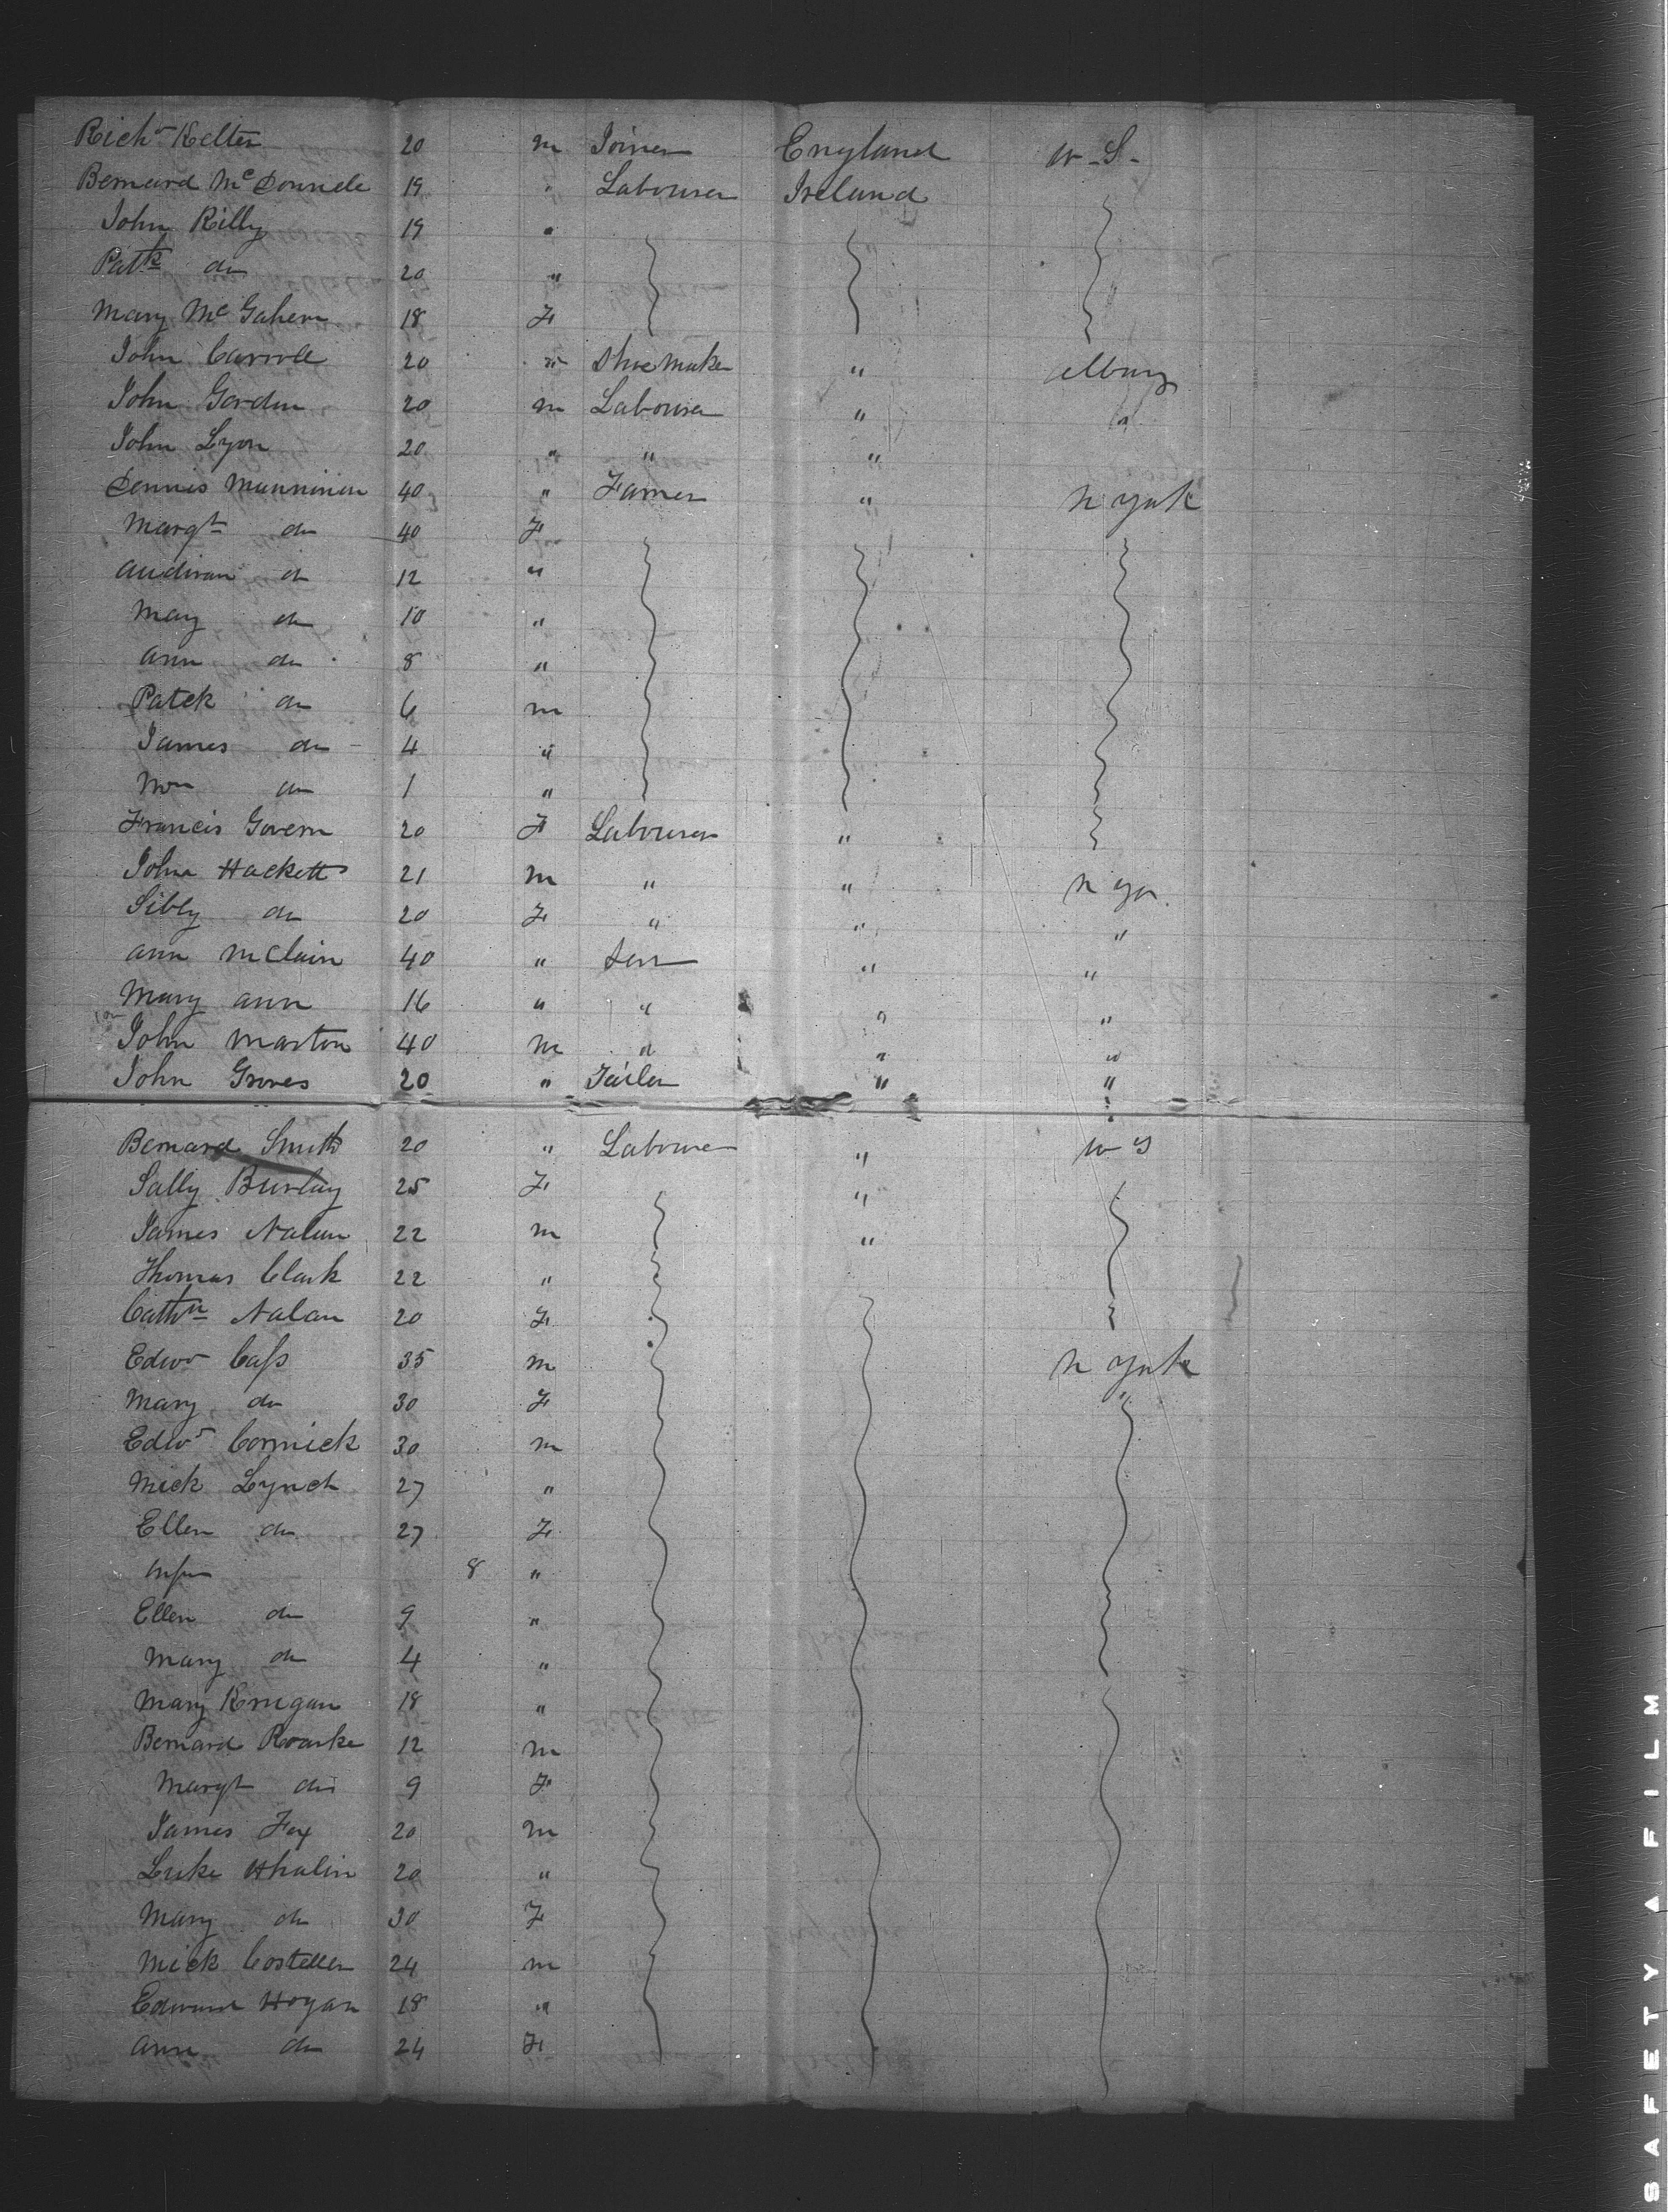 Richd Kelter 20 m Joiner England W-S-
Bernard Mc Donnele 19 " Labourer Ireland
John Rilly 19 "
Patk do 20 "
Mary Mc Gahern 18 F
John Carrole 20 " Shoe Maker " Albany
John Gordon 20 m Labourer " "
John Lyon 20 " " "
Dennis 40 " Farmer " N York
Margt do 40 F
do 12 "
Mary do 10 "
Ann do 8 "
Patck do 6 m
James do 4 "
Wm do 1 "
Francis Govern 20 F Labourer "
John Hackett 21 m " " N Yor
Sibly do 20 F " " "
Ann McClain 40 " Serv " "
Mary Ann 16 " " " "
John Marton 40 m " " "
John Groves 20 " Tailor " "
Bernard Smith 20 " Labourer " W S
Sally Burlay 25 F "
James Nalan 22 m "
Thomas Clark 22 "
Cathn Nalan 20 F
Edwd Cass 35 m N York
Mary do 30 F "
Edwd Cormick 30 m
Mick Lynch 27 "
Ellen do 27 F
Infn 8 "
Ellen do 9 "
Mary do 4 "
Mary 18 "
Bernard Roarke 12 m
Margt do 9 F
James Fox 20 m
Luke Whalin 20 "
Mary do 30 F
Mick Costellen 24 m
Edward Hogan 18 "
Ann do 24 F
SAFETY A FILM